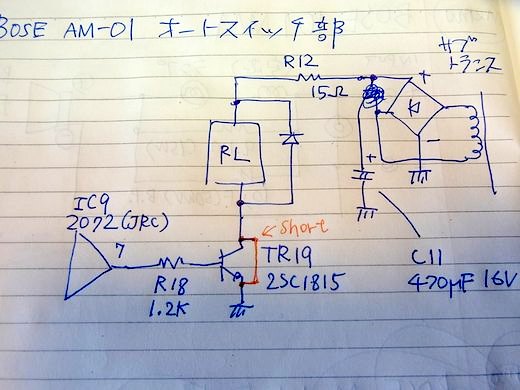 BOSE AM-01 オートスイッチ部
サブ
トランス
R12
15Ω
+
RL
-
+
IC9
2072(JRC)
7
← Short
TR19
2SC1815
R18
1.2K
C11
470μF 16V